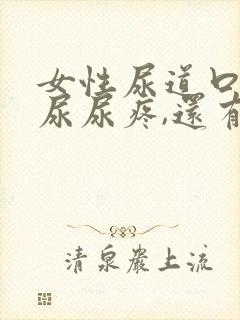 女性尿道口
尿尿疼,還有
清泉巖上流